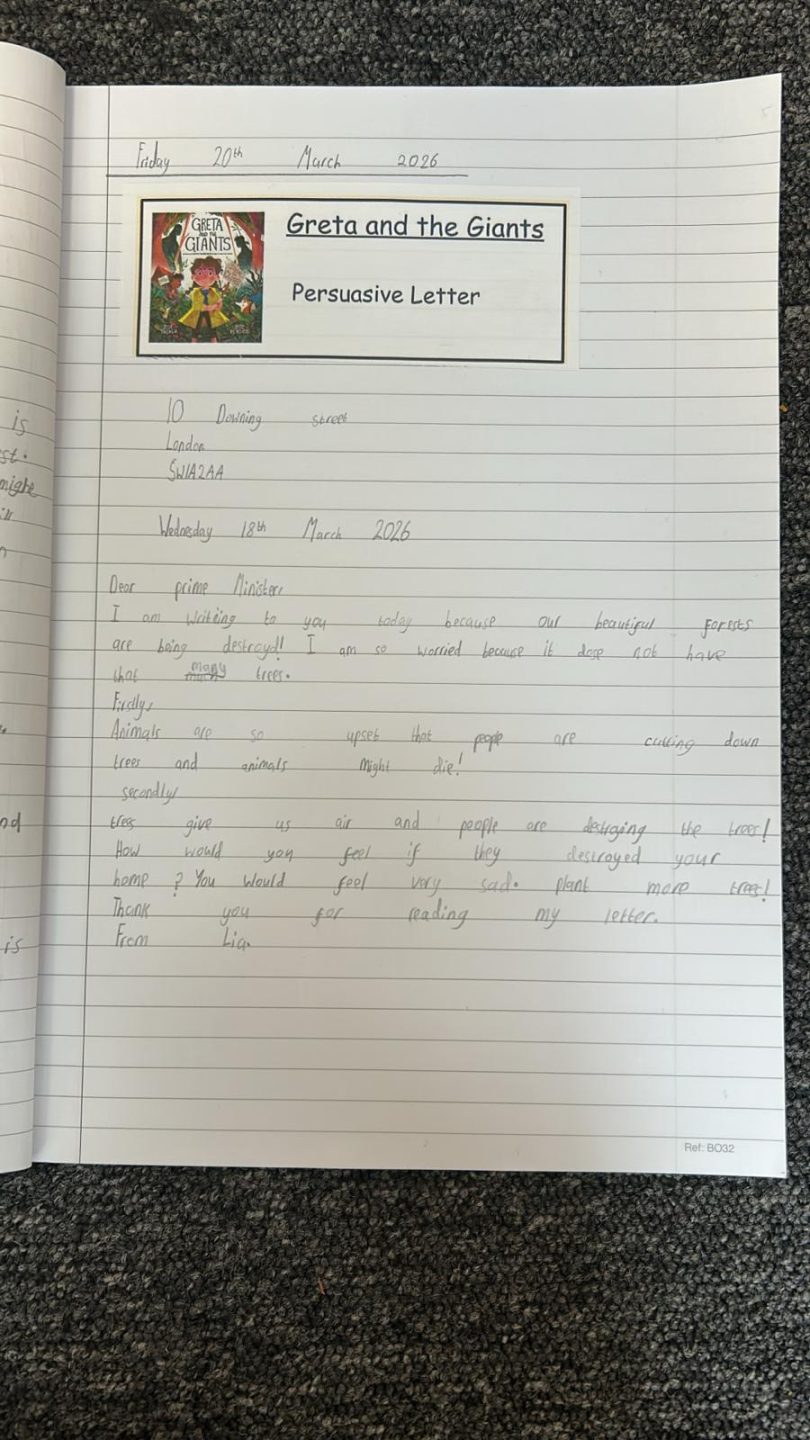 is
st.
might
nd
is
Friday 20th March 2026
GRETA AND THE GIANTS
Greta and the Giants
Persuasive Letter
10 Downing street
London
SW1A2AA
Wednesday 18th March 2026
Dear prime Minister,
I am writing to you today because our beautiful forests
are being destroyd! I am so worried because it dose not have
that many trees.
Firstly,
Animals are so upset that people are cutting down
trees and animals might die!
secondly,
trees give us air and people are destroging the trees!
How would you feel if they destroyed your
home? You would feel very sad. plant more trees!
Thank you for reading my letter.
From Lia.
Ref: BO32